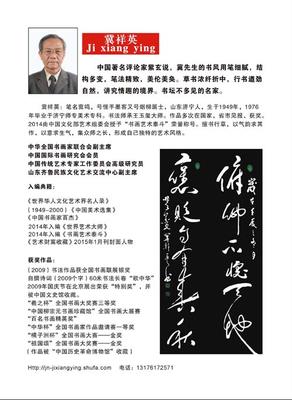 冀祥英
Ji xiang ying
中国著名评论家紫玄说,冀先生的书风用笔细腻,结
构多变,笔法精致,美伦美奂。草书浓纤折中,行书遒劲
自然,讲究情趣的境界。书坛不多见的名家。
冀祥英:笔名冀鸣,
山东济宁人,生于1949年,1976
年毕业于济宁师专美术专科。书法师承王玉玺大师。作品多次在国家、省市见报、获奖。
2014由中国文化部艺术组委授予“书画艺术泰斗”荣誉称号。
以意求生气,集众师之长,形成自己独特的艺术风格。
中华全国书画家联合会副主席
中国国际书画研究会会员
中国传统艺术专家工作委员会高级研究员
山东齐鲁民族文化艺术交流中心副主席
入编典籍:
《世界华人文化艺术界名人录》
(1949-2000)《中国美术选集》
《中国书画家百杰》
2014年入编《世界艺术大师》
2014年入编《书画艺术泰斗》
《艺术财富收藏》2015年1月刊封面人物
获奖作品:
(2009)书法作品获全国书画联展银奖
自撰诗词(2009个字)60米书法长卷“歌中华”
2009年国庆节在北京展出荣获“特别奖”,并被
中国文史馆收藏。
“羲之杯”全国书画大赛三等奖
“中国柳宗元书画珍藏馆”全国书画大展赛
“百名书画精英奖”
“中华杯”全国书画家作品邀请赛一等奖
“橘子洲杯”全国书画大赛——金奖
“祖国颂”全国书画大赛——金奖
(作品被“中国历史革命博物馆”收藏)
俯仰不愧天地
褒贬自有春秋
http://jn-jixiangying.shufa.com 电话:13176172571